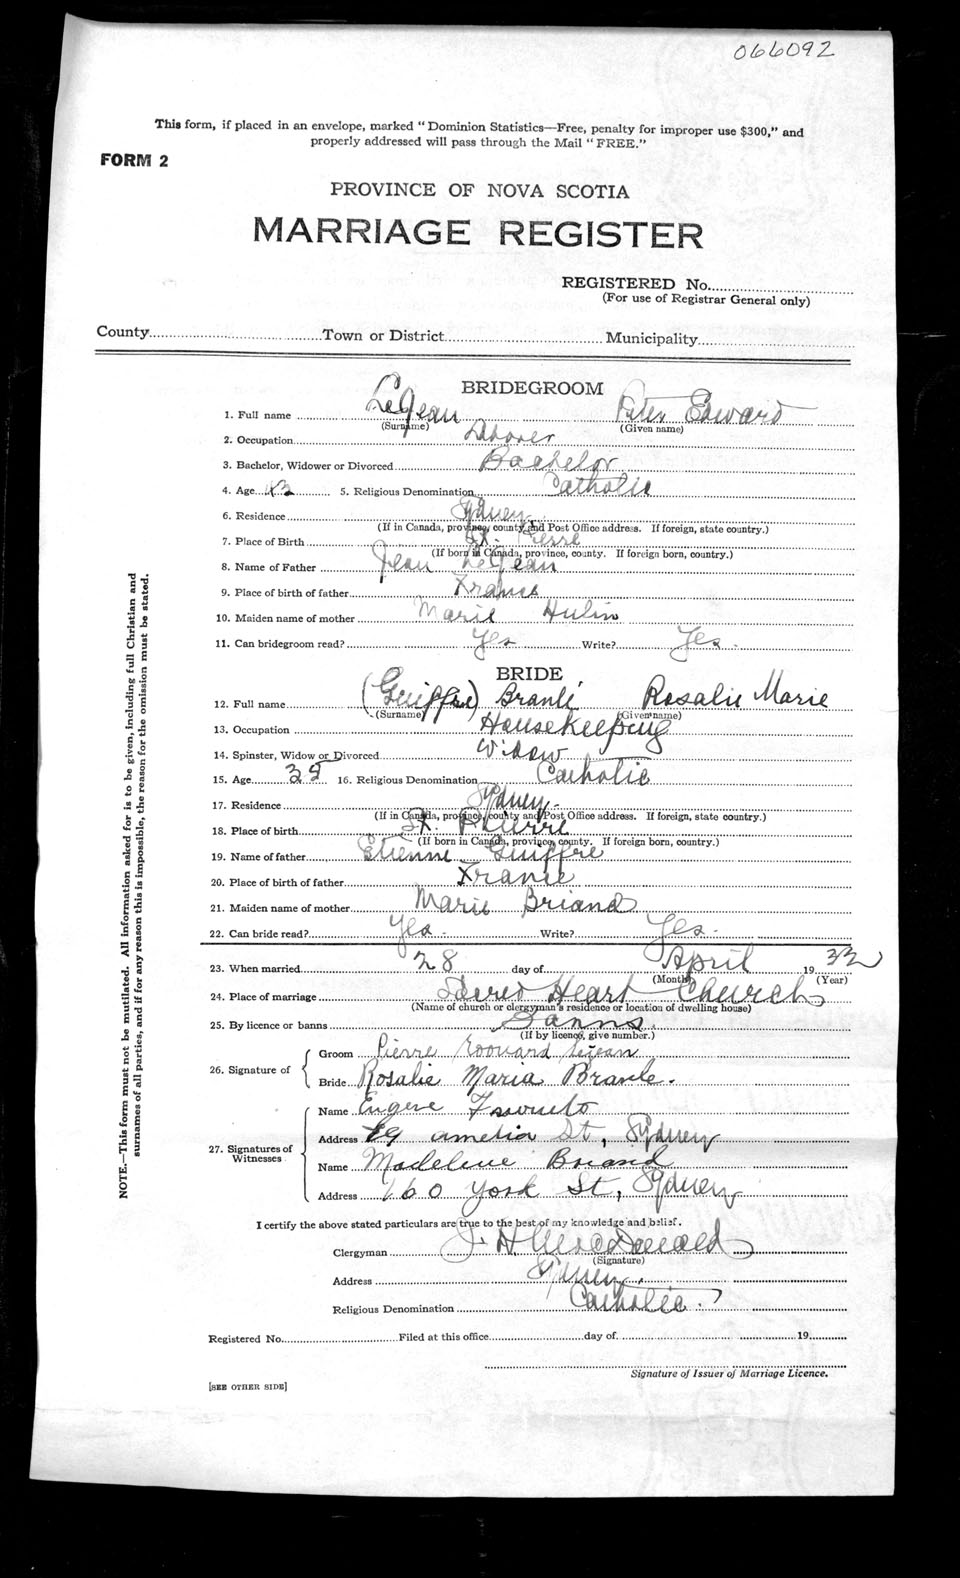 066092
This form, if placed in an envelope, marked "Dominion Statistics—Free, penalty for improper use $300," and
properly addressed will pass through the Mail "FREE."
FORM 2
PROVINCE OF NOVA SCOTIA
MARRIAGE REGISTER
REGISTERED No.
(For use of Registrar General only)
County Town or District Municipality
BRIDEGROOM
1. Full name LeJean Peter Edward
(Surname) (Given name)
2. Occupation Laborer
3. Bachelor, Widower or Divorced Bachelor
4. Age 42 5. Religious Denomination Catholic
6. Residence Sydney
(If in Canada, province, county and Post Office address. If foreign, state country.)
7. Place of Birth St. Pierre
(If born in Canada, province, county. If foreign born, country.)
8. Name of Father Jean LeJean
9. Place of birth of father France
10. Maiden name of mother Marie Hulin
11. Can bridegroom read? Yes Write? Yes.
BRIDE
12. Full name (Guiffre) Branle Rosalie Marie
(Surname) (Given name)
13. Occupation Housekeeping
14. Spinster, Widow or Divorced Widow
15. Age 35 16. Religious Denomination Catholic
17. Residence Sydney.
(If in Canada, province, county and Post Office address. If foreign, state country.)
18. Place of birth St. Pierre
(If born in Canada, province, county. If foreign born, country.)
19. Name of father Etienne Guiffre
20. Place of birth of father France
21. Maiden name of mother Marie Briand
22. Can bride read? Yes. Write? Yes.
23. When married 28 day of April 1932
(Month) (Year)
24. Place of marriage Sacred Heart Church
(Name of church or clergyman's residence or location of dwelling house)
25. By licence or banns Banns.
(If by licence, give number.)
26. Signature of
Groom Pierre Edouard Lejean
Bride Rosalie Maria Branle.
27. Signatures of Witnesses
Name Eugene
Address 79 Amelia St, Sydney
Name Madeleine Briand
Address 160 York St, Sydney
I certify the above stated particulars are true to the best of my knowledge and belief.
Clergyman J. H. MacDonald
(Signature)
Address Sydney.
Religious Denomination Catholic.
Registered No. Filed at this office day of 19
Signature of Issuer of Marriage Licence.
[SEE OTHER SIDE]
NOTE.—This form must not be mutilated. All information asked for is to be given, including full Christian and
surnames of all parties, and if for any reason this is impossible, the reason for the omission must be stated.